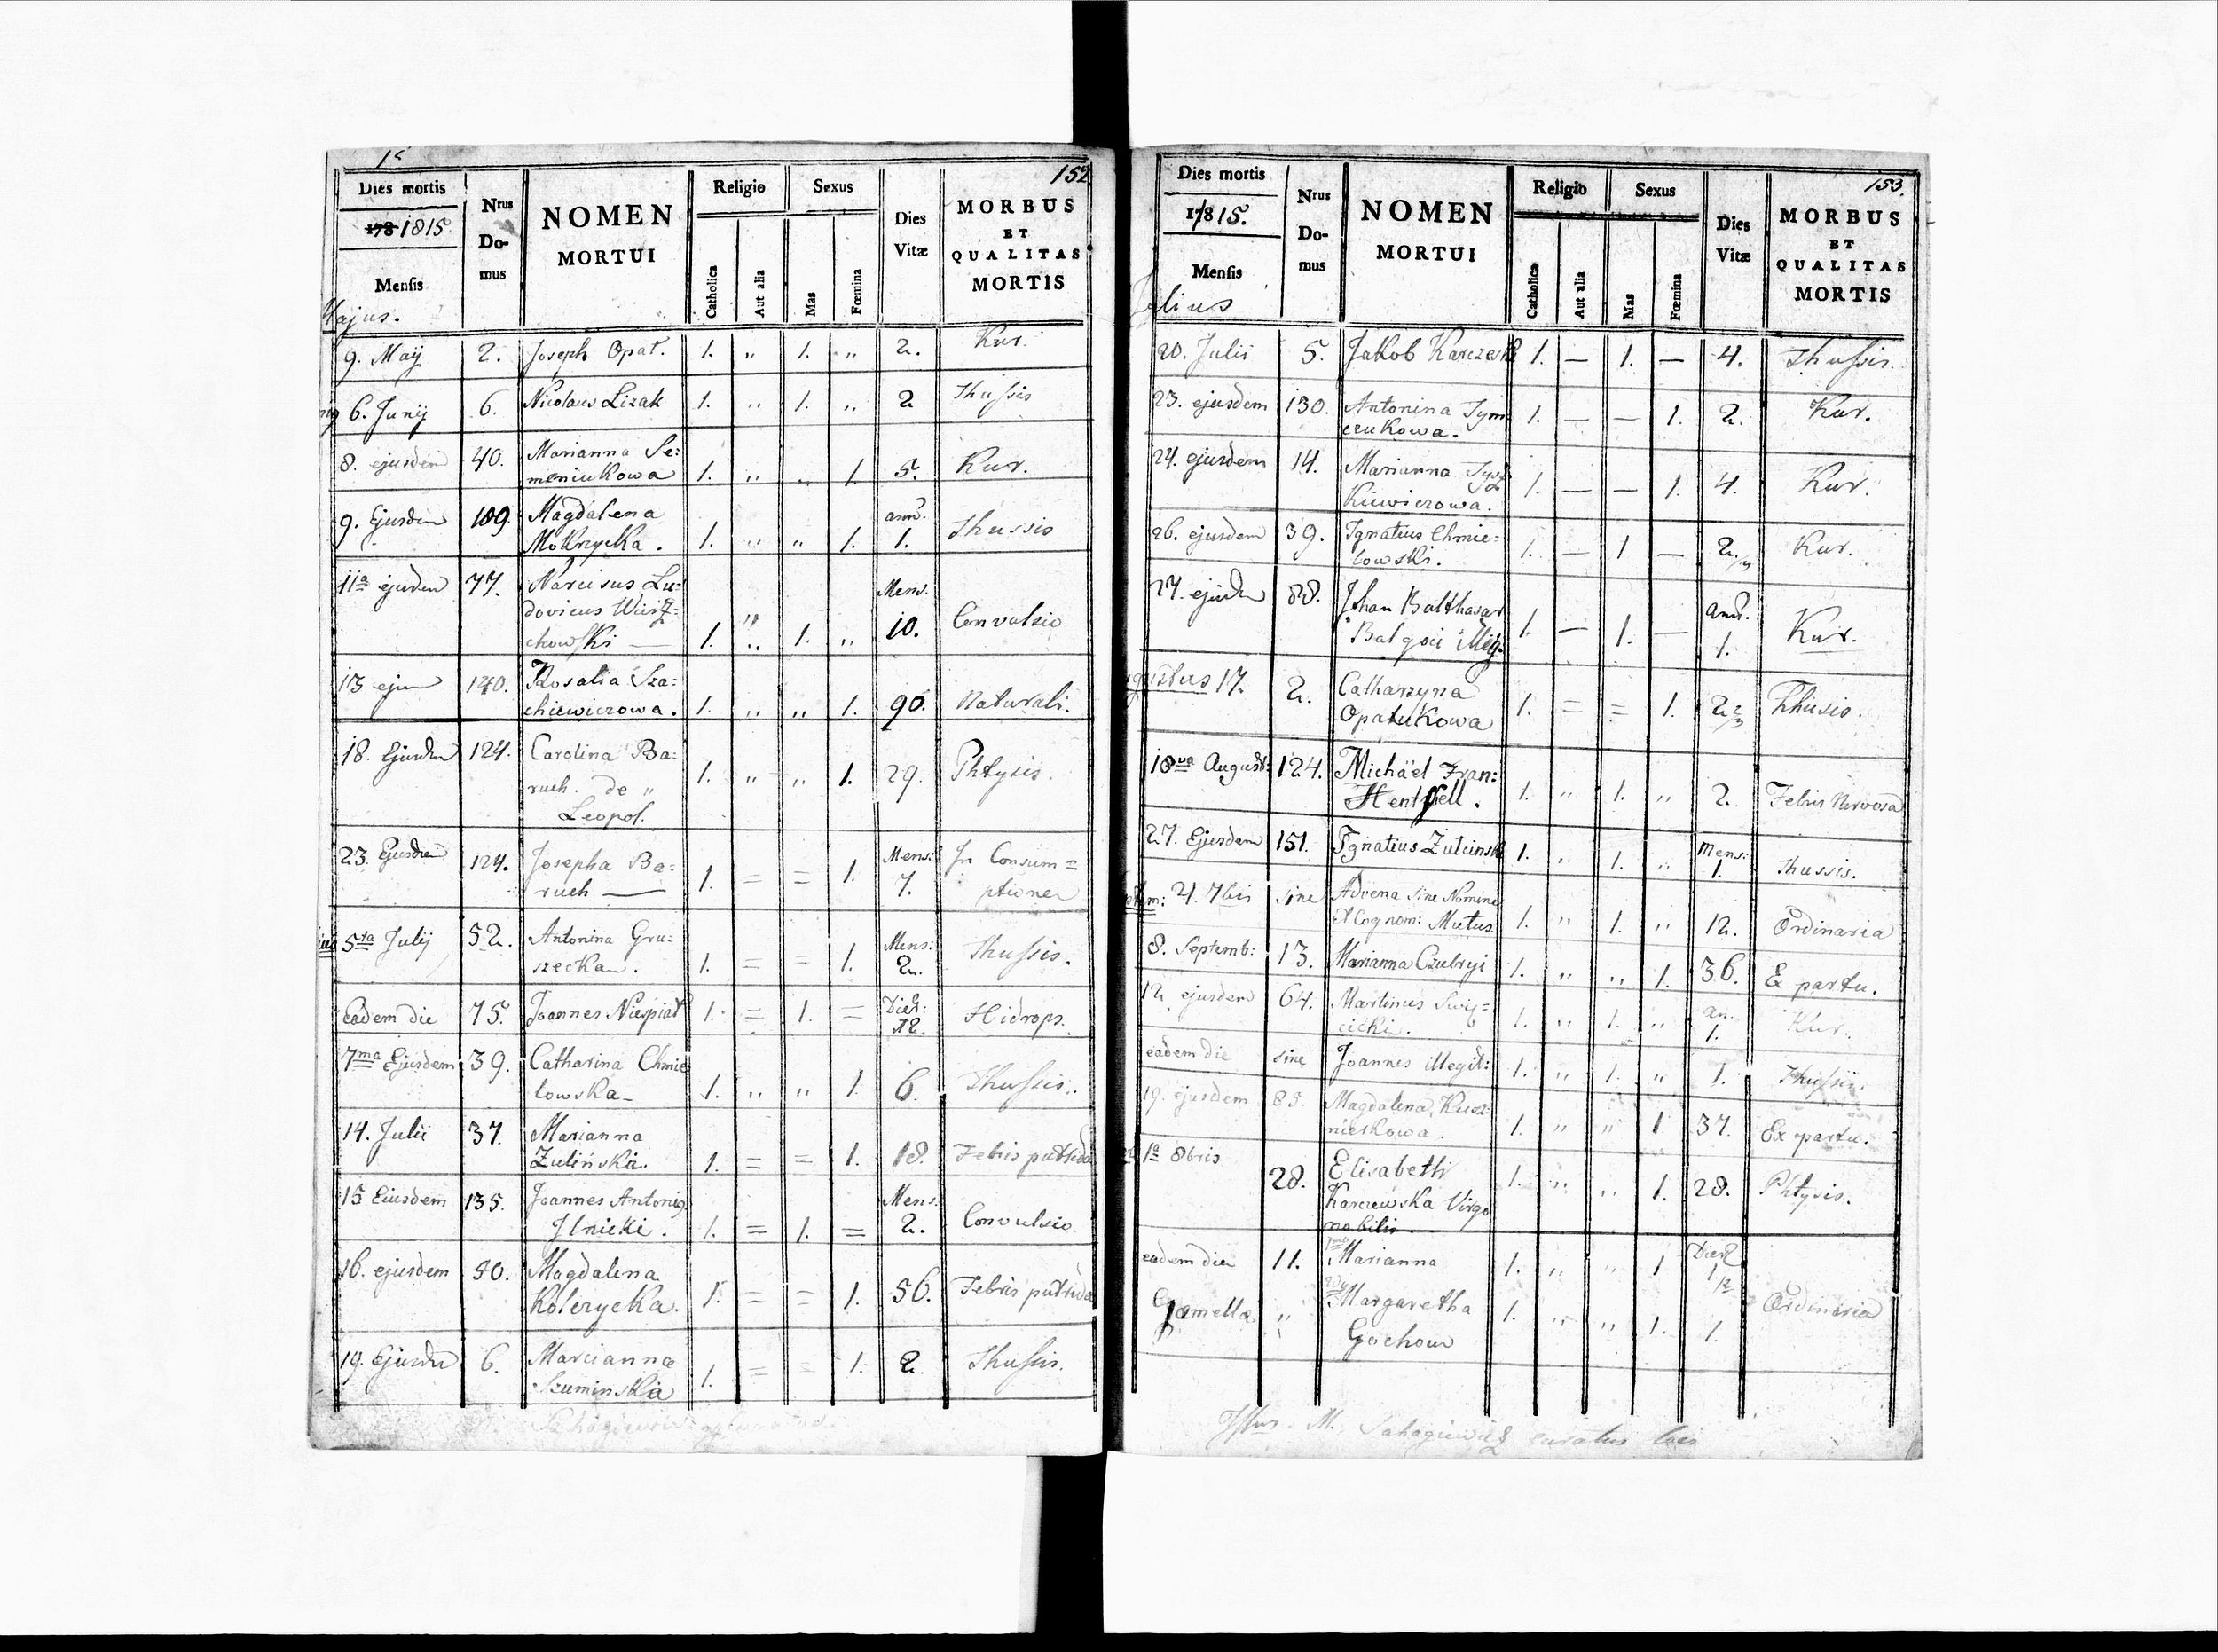 152.
Dies mortis
178 1815
Mensis
Majus.
Nrus Do- mus
NOMEN
MORTUI
Religio
Catholica
Aut alia
Sexus
Mas
Fœmina
Dies Vitæ
MORBUS
ET
QUALITAS
MORTIS
9. Maij 2. Joseph Opat. 1. „ 1. „ 2. Kur.
6. Junij 6. Nicolaus Lizak 1. „ 1. „ 2 Thussis
8. ejusdem 40. Marianna Se:
meniukowa 1. „ „ 1. 5. Kur.
9. Ejusdem 109. Magdalena ann.
Mokrzycka. 1. „ „ 1. 1. Thussis
11a ejusdem 77. Narcisus Lu: Mens.
dovicus
chowski — 1. „ 1. „ 10. Convulsio
13 140. Rosalia Sza:
chiewiczowa. 1. „ „ 1. 90. Naturalis.
18. Ejusdem 124. Carolina Ba:
ruch. de „ 1. „ „ 1. 29. Phtysis.
Leopol.
23. Ejusdem 124. Josepha Ba: Mens: In Consum=
ruch — 1. = = 1. 7. ptione
5ta Julij 52. Antonina Gru: Mens:
szecka. 1. = = 1. 2. Thussis.
Eadem die 75. Joannes Niespiał 1. = 1. = Hidrops.
7ma Ejusdem 39. Catharina Chmie
lowska 1. „ „ 1. 6. Thussis.
14. Julii 37. Marianna
Zulińska. 1. = = 1. 18. Febris putrida
15 Eiusdem 135. Joannes Antonig Mens.
Ilnicki. 1. = 1. = 2. Convulsio
16. ejusdem 50. Magdalena
Kolczycka. 1. = = 1. 56. Febris putrida
19. Ejusdem 6. Marianna
Szuminska 1. = = 1. 2. Thussis.
153.
Dies mortis
17815.
Mensis
Julius
Nrus Do- mus
NOMEN
MORTUI
Religio
Catholica
Aut alia
Sexus
Mas
Fœmina
Dies Vitæ
MORBUS
ET
QUALITAS
MORTIS
20. Julii 5. Jakob 1. — 1. — 4. Thussis.
23. ejusdem 130. Antonina Tym
czukowa. 1. — — 1. 2. Kur.
24. ejusdem 14. Marianna Tysz
kiewiczowa. 1. — — 1. 4. Kur.
26. ejusdem 39. Ignatius Chmie:
lowski. 1. — 1 — 2. Kur.
27. 88. Johan Balthasar ann.
1. — 1. — 1. Kur.
17. 2. Catharzyna
Opatukowa 1. = = 1. 2
18va August: 124. Michäel Fran:
Hentschell. 1. „ 1. „ 2. Febris Nervosa
27. Ejusdem 151. Ignatius Zulcinski 1. „ 1. „ Mens: 1. Thussis.
4. 7bris sine sine Nomine
et Cognom: Mutus 1. „ 1. „ 12. Ordinaria
8. Septemb: 13. Marianna Czubryi 1. „ „ 1. 36. Ex partu.
12. ejusdem 64. Martinus Swię= an.
cicki. 1. „ 1. „ 1. Kur.
eadem die sine Joannes illegit: 1. „ 1. „ 1. Thussis.
19. ejusdem 85. Magdalena Kusz:
nierkowa. 1. „ „ 1 37. Ex partu.
1a 8bris 28. Elisabeth
Karczewska Virgo 1. „ „ 1. 28. Phtysis.
nobilis.
eadem die 11. 1ma Marianna 1. „ „ 1
Gæmellæ „ 2da Margaretha 1. „ „ 1. 1. Ordinaria
Gochow
M. Sahagiewicz curatus loci